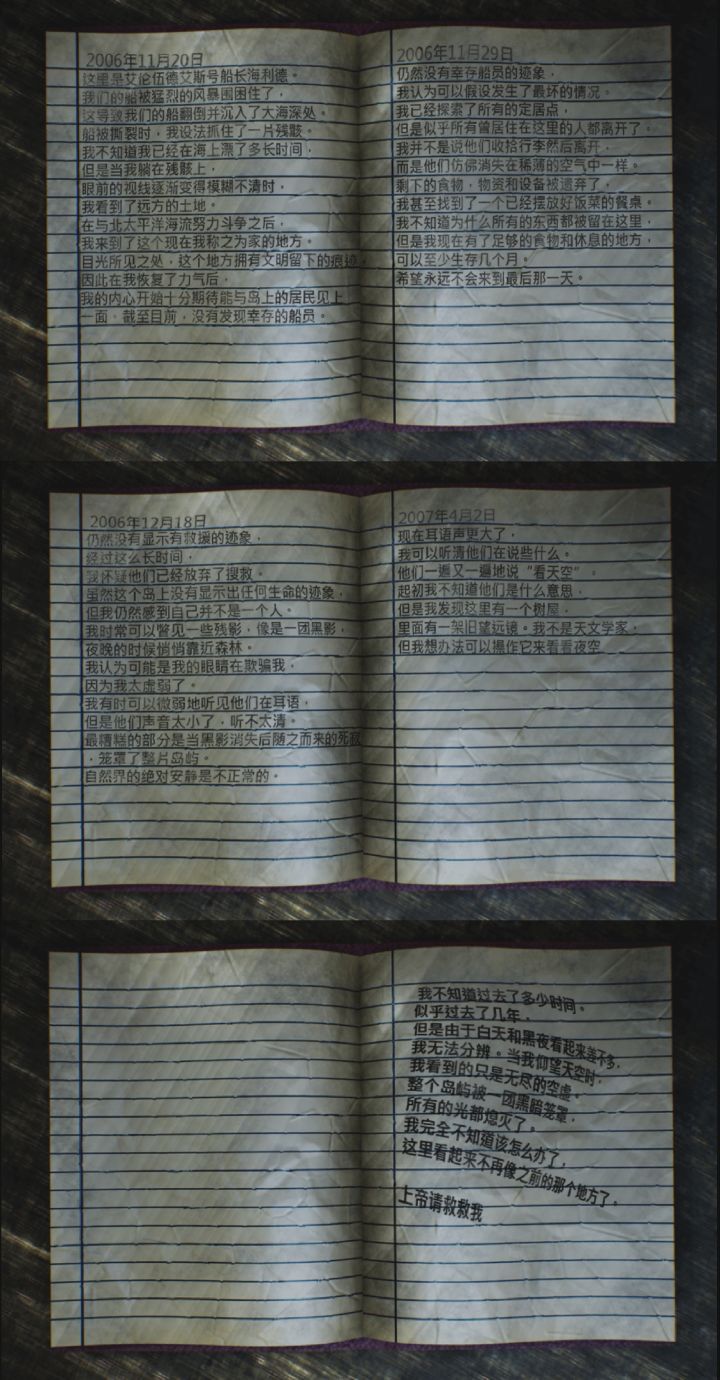 2006年11月20日
这里是艾伦伍德艾斯号船长海利德。
我们的船被猛烈的风暴围困住了，
这导致我们的船翻倒并沉入了大海深处。
船被撕裂时，我设法抓住了一片残骸。
我不知道我已经在海上漂了多长时间，
但是当我躺在残骸上，
眼前的视线逐渐变得模糊不清时，
我看到了远方的土地。
在与北太平洋海流努力斗争之后，
我来到了这个现在我称之为家的地方。
目光所见之处，这个地方拥有文明留下的痕迹，
因此在我恢复了力气后，
我的内心开始十分期待能与岛上的居民见上
一面。截至目前，没有发现幸存的船员。
2006年11月29日
仍然没有幸存船员的迹象，
我认为可以假设发生了最坏的情况。
我已经探索了所有的定居点，
但是似乎所有曾居住在这里的人都离开了。
我并不是说他们收拾行李然后离开，
而是他们仿佛消失在稀薄的空气中一样。
剩下的食物，物资和设备被遗弃了，
我甚至找到了一个已经摆放好饭菜的餐桌。
我不知道为什么所有的东西都被留在这里，
但是我现在有了足够的食物和休息的地方，
可以至少生存几个月。
希望永远不会来到最后那一天。
2006年12月18日
仍然没有显示有救援的迹象，
经过这么长时间，
我怀疑他们已经放弃了搜救。
虽然这个岛上没有显示出任何生命的迹象，
但我仍然感到自己并不是一个人。
我时常可以瞥见一些残影，像是一团黑影，
夜晚的时候悄悄靠近森林。
我认为可能是我的眼睛在欺骗我，
因为我太虚弱了。
我有时可以微弱地听见他们在耳语，
但是他们声音太小了，听不太清。
最糟糕的部分是当黑影消失后随之而来的死寂
，笼罩了整片岛屿。
自然界的绝对安静是不正常的。
2007年4月2日
现在耳语声更大了，
我可以听清他们在说些什么。
他们一遍又一遍地说“看天空”。
起初我不知道他们是什么意思，
但是我发现这里有一个树屋，
里面有一架旧望远镜。我不是天文学家，
但我想办法可以操作它来看看夜空
我不知道过去了多少时间。
似乎过去了几年，
但是由于白天和黑夜看起来差不多，
我无法分辨。当我仰望天空时，
我看到的只是无尽的空虚。
整个岛屿被一团黑暗笼罩，
所有的光都熄灭了。
我完全不知道该怎么办了，
这里看起来不再像之前的那个地方了。
上帝请救救我